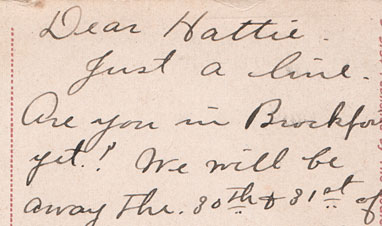 Dear Hattie.
Just a line.
Are you in Brockfor
yet.! We will be
away the. 30th & 31st of